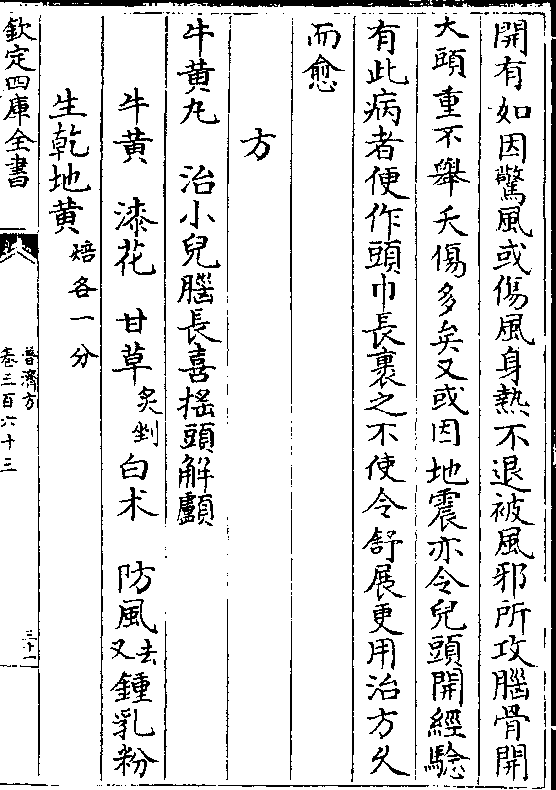 開有如因驚風或傷風身熱不退被風邪所攻腦骨開
大頭重不舉夭傷多矣又或因地震亦令兒頭開經驗
有此病者便作頭巾長裹之不使令舒展更用治方久
而愈
方
牛黄丸　治小兒腦長喜揺頭解顱
牛黄　漆花　甘草炙剉白朮　防風去叉鍾乳粉
生乾地黄焙各一分
欽定四庫全書
普濟方
卷三百六十三
三十一